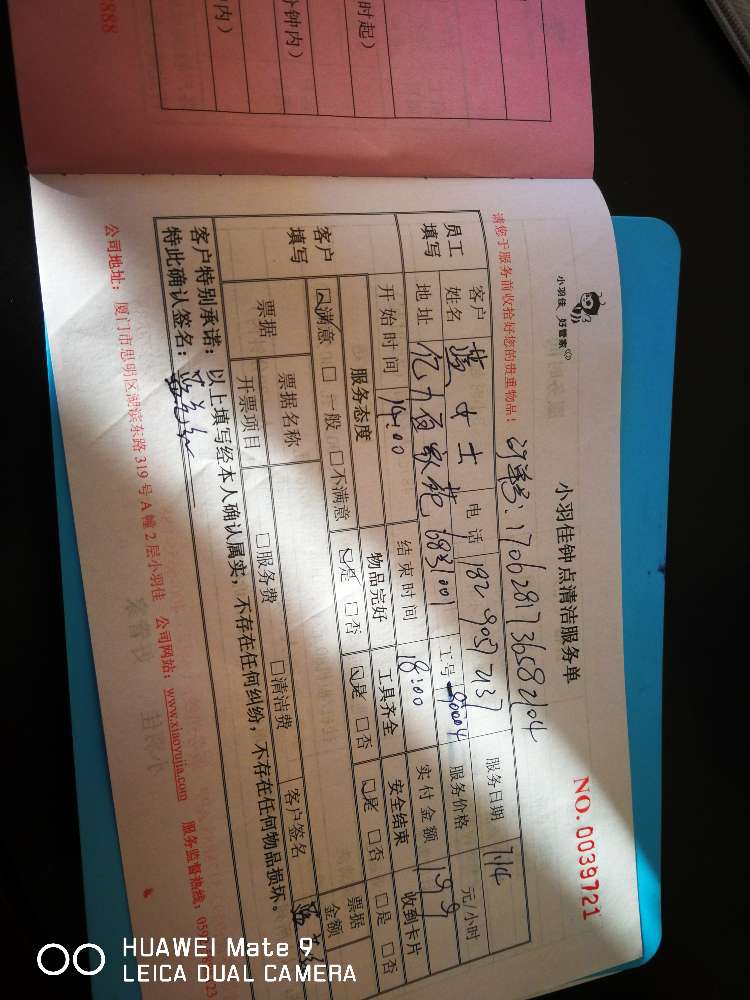 888
内）
钟内）
时起）
小羽佳 好管家
小羽佳钟点清洁服务单
NO. 0039721
请您于服务前收拾好您的贵重物品！
170628173658204
员工填写
客户姓名
女士
电话
服务日期
7.14
地址
工号
90004
服务价格
元/小时
客户填写
开始时间
14:00
结束时间
18:00
实付金额
199
收到卡片
服务态度
物品完好
工具齐全
安全结束
☑满意 □一般 □不满意
☑是 □否
☑是 □否
☑是 □否
□是 □否
票据
票据名称
客户签名
票据金额
开票项目
□服务费
□清洁费
客户特别承诺：以上填写经本人确认属实，不存在任何纠纷，不存在任何物品损坏。
特此确认签名：
公司地址：厦门市思明区湖滨东路 319 号 A 幢 2 层小羽佳 公司网站：www.xiaoyujia.com 服务监督热线：059
23
HUAWEI Mate 9
LEICA DUAL CAMERA